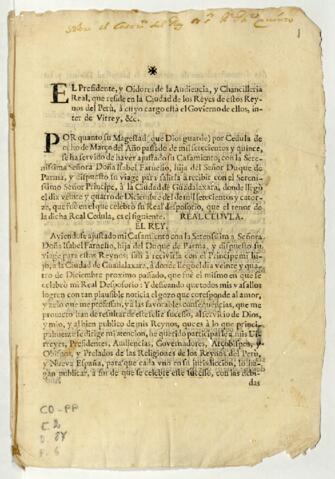 Sobre el Casam.to del Rey
1
EL Presidente, y Oidores de la Audiencia, y Chancilleria
Real, que reside en la Ciudad de los Reyes de estos Rey
nos del Perù, à cuyo cargo està el Govierno de ellos, in
ter de Virrey, &c.
POR quanto su Magestad (que Dios guarde) por Cedula de
ocho de Março del Año passado de mil setecientos y quince,
se ha servido de haver ajustado su Casamiento, con la Sere
nissima Señora Doña Isabel Farnesio, hija del Señor Duque de
Parma, y dispuesto su viage para salir a recibir con el Sereni
simo Señor Principe, à la Ciudad de Guadalaxara, donde llegò
el dia veinte y quatro de Diziembre del de mil setecientos y cator
ze, que fue en el que celebrò su Real desposorio, que el tenor de
la dicha Real Cedula, es el siguiente. REAL CEDULA.
EL REY.
AViendose ajustado mi Casamiento con la Serenissima Señora
Doña Isabel Farnesio, hija del Duque de Parma, y dispuesto su
viage para estos Reynos; salì à recivirla con el Principe mi hi
jo, à la Ciudad de Guadalaxara, à donde llegò el dia veinte y qua
tro de Diziembre proximo passado, que fue el mismo en que se
celebrò mi Real Desposorio: Y deseando que todos mis vasallos
logren con tan plausible noticia el gozo que corresponde al amor,
y zelo que me professan, y à las favorables consequencias, que me
prometo han de resultar de este feliz sucesso, al servicio de Dios,
y mio, y al bien publico de mis Reynos, que es à lo que princi
palmente se dirige mi atencion, he querido participarlo à mis Vi
rreyes, Presidentes, Audiencias, Governadores, Arçobispos, y
Obispos, y Prelados de las Religiones de los Reynos del Perù,
y Nueva España, para que cada uno en su jurisdiccion, lo ha
gan publicar, à fin de que se celebre este sucesso, con las debi
das
CO-PP
C.2
D.
F.6